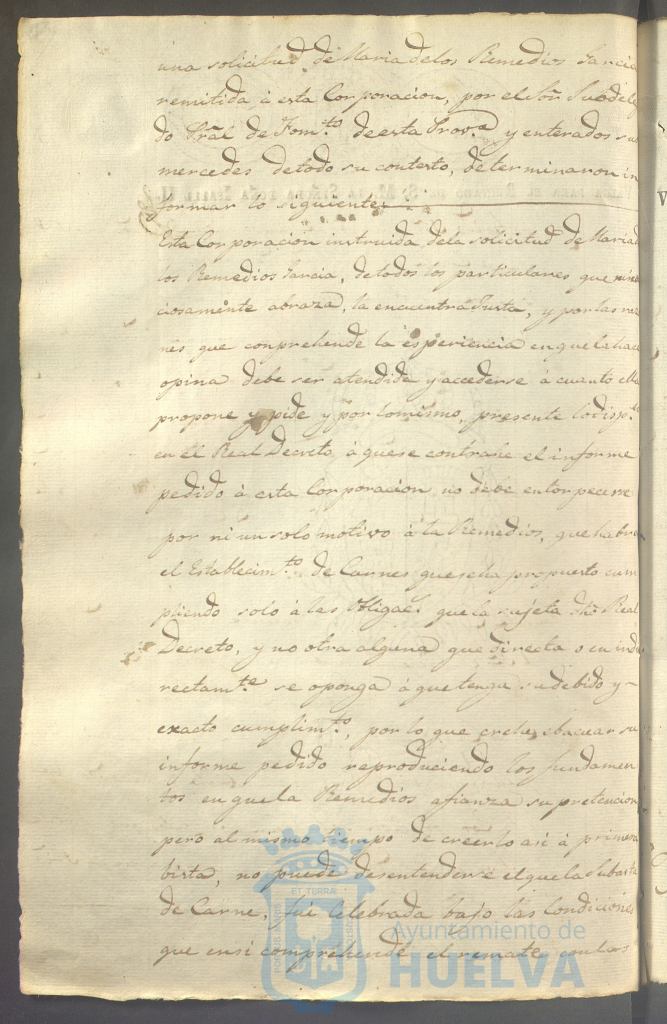 una solicitud de Maria delos Remedios Garcia
remitida á esta Corporacion, por el Sor. Subdeleg
do Pral. de Fom.to de esta Prov.a y enterados sus
mercedes de todo su contesto, determinaron in
formar lo siguiente
Esta Corporacion instruida dela solicitud de Maria d
los Remedios Garcia, de todos los particulares que minu
ciosamente abraza, la encuentra Justa, y por las razo
nes que conprehende la esperiencia en que la hace
opina debe ser atendida y accederse á cuanto ella
propone y pide y por lo mismo, presente lo disp.to
en el Real Decreto á que se contrahe el informe
pedido á esta Corporacion no debe entorpecerse
por ni un solo motivo á la Remedios, que habra
el Establecim.to de Carnes que se ha propuesto cum
pliendo solo á las Obligac.s que la sujeta dho. Real
Decreto, y no otra alguna que directa o en indi
rectam.te se oponga á que tenga su debido y
exacto cumplim.to, por lo que crehe ebacuar su
informe pedido reproduciendo los fundamen
tos en que la Remedios afianza su pretencion
pero al mismo tiempo de creerlo asi á primera
bista, no puede desentenderse el que la subasta
de Carne, fué celebrada bajo las condiciones
que en si comprehende el remate
Ayuntamiento de
HUELVA